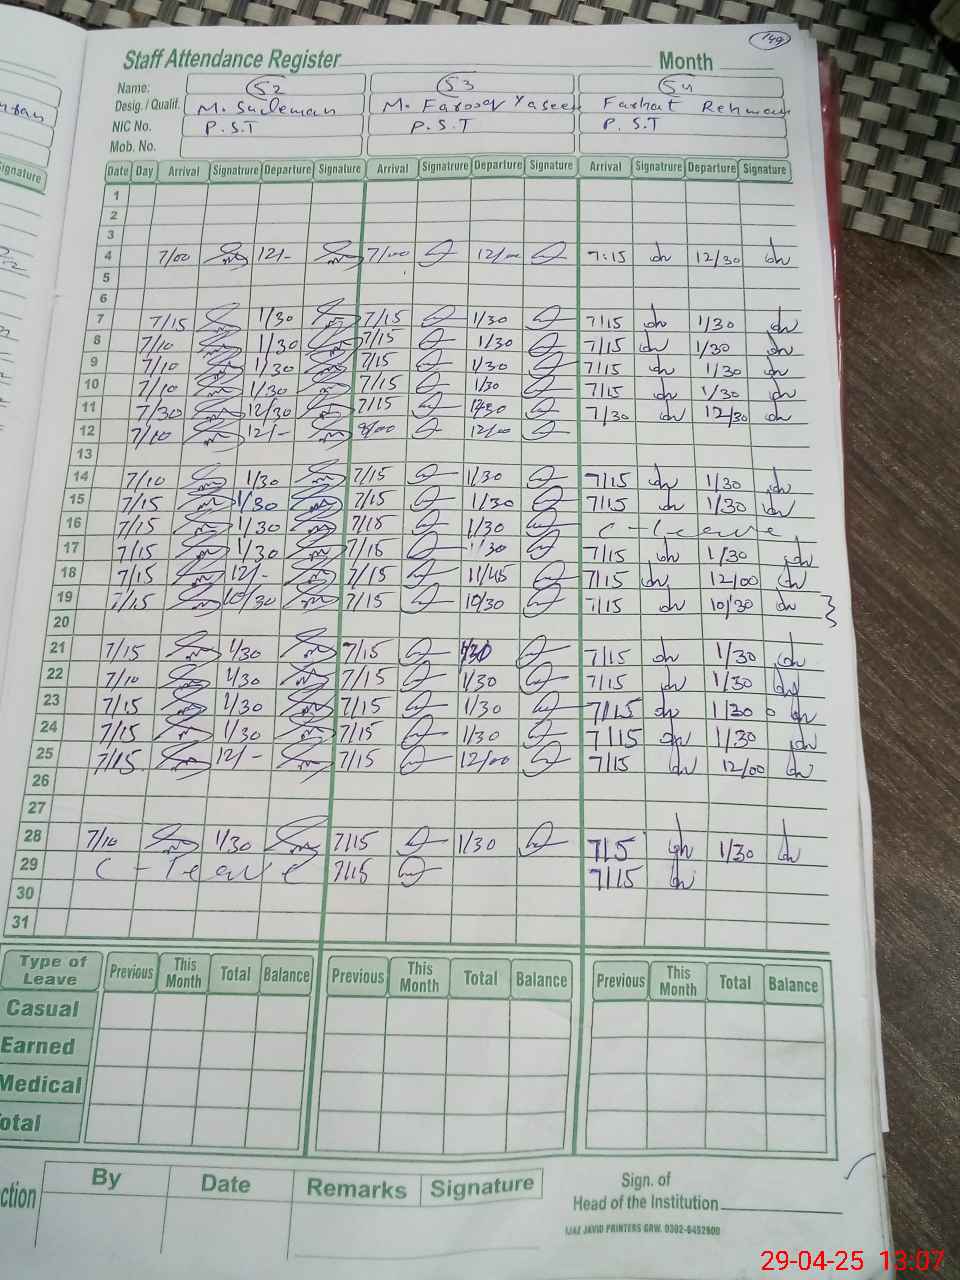 149
Staff Attendance Register Month
Name: 52 53 54
Desig. / Qualif. M. Suleman M. Farooq Yaseen Farhat Rehman
NIC No. P.S.T P.S.T P.S.T
Mob. No.
Date Day Arrival Signatrure Departure Signature Arrival Signatrure Departure Signature Arrival Signatrure Departure Signature
1
2
3
4 7/00 12/- 7/00 12/00 7:15 12/30
5
6
7 7/15 1/30 7/15 1/30 7/15 1/30
8 7/10 1/30 7/15 1/30 7/15 1/30
9 7/10 1/30 7/15 1/30 7/15 1/30
10 7/10 1/30 7/15 1/30 7/15 1/30
11 7/30 12/30 7/15 12/30 7/30 12/30
12 7/10 12/- 8/00 12/00
13
14 7/10 1/30 7/15 1/30 7/15 1/30
15 7/15 1/30 7/15 1/30 7/15 1/30
16 7/15 1/30 7/15 1/30 C - leave
17 7/15 1/30 7/15 1/30 7/15 1/30
18 7/15 12/- 7/15 11/45 7/15 12/00
19 7/15 10/30 7/15 10/30 7/15 10/30
20
21 7/15 1/30 7/15 1/30 7/15 1/30
22 7/10 1/30 7/15 1/30 7/15 1/30
23 7/15 1/30 7/15 1/30 7/15 1/30
24 7/15 1/30 7/15 1/30 7/15 1/30
25 7/15 12/- 7/15 12/00 7/15 12/00
26
27
28 7/10 1/30 7/15 1/30 7/5 1/30
29 C - leave 7/15 7/15
30
31
Type of Leave Previous This Month Total Balance Previous This Month Total Balance Previous This Month Total Balance
Casual
Earned
Medical
otal
ction By Date Remarks Signature
Sign. of
Head of the Institution
IJAZ JAVID PRINTERS GRW. 0302-6452900
29-04-25 13:07